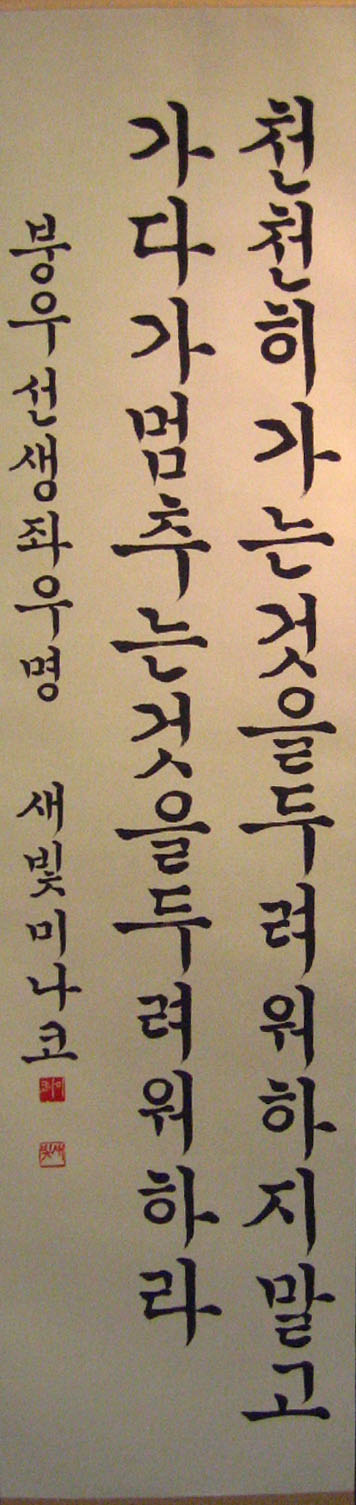 천천히가는것을두려워하지말고
가다가멈추는것을두려워하라
붕우선생좌우명 새빛미나코